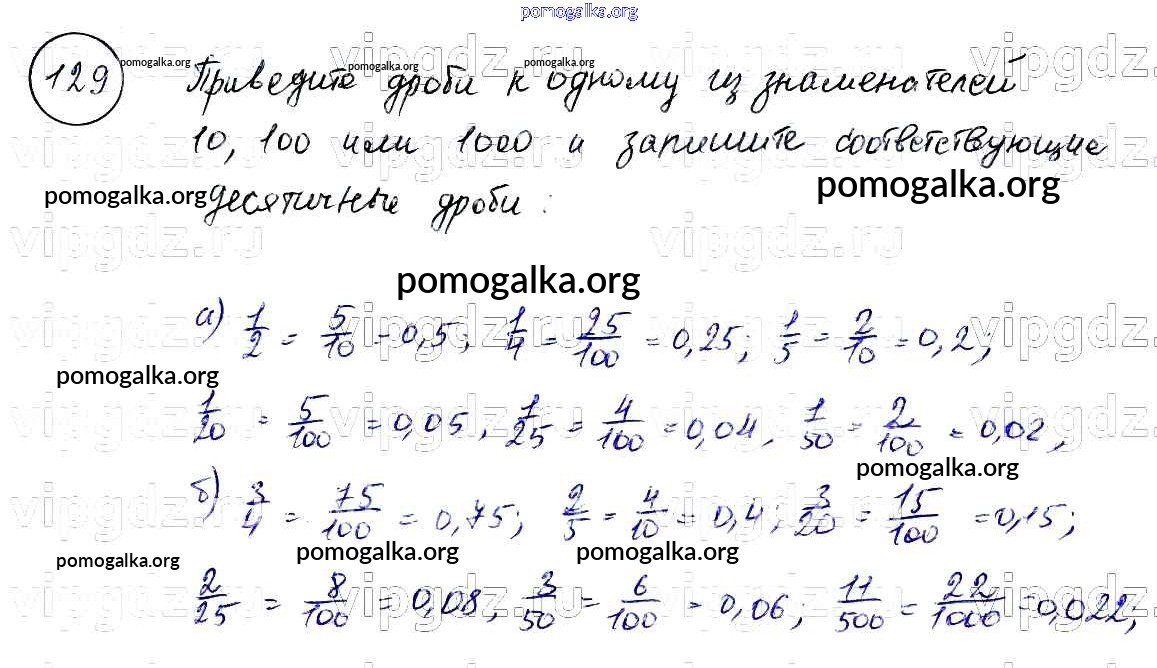 pomogalka.org
129 Приведите дроби к одному из знаменателей
10, 100 или 1000 и запишите соответствующие
десятичные дроби:
pomogalka.org pomogalka.org
pomogalka.org
а) 1/2 = 5/10 = 0,5; 1/4 = 25/100 = 0,25; 1/5 = 2/10 = 0,2;
pomogalka.org
1/20 = 5/100 = 0,05, 1/25 = 4/100 = 0,04, 1/50 = 2/100 = 0,02,
pomogalka.org
б) 3/4 = 75/100 = 0,75; 2/5 = 4/10 = 0,4, 3/20 = 15/100 = 0,15;
pomogalka.org pomogalka.org pomogalka.org
2/25 = 8/100 = 0,08, 3/50 = 6/100 = 0,06; 11/500 = 22/1000 = 0,022;